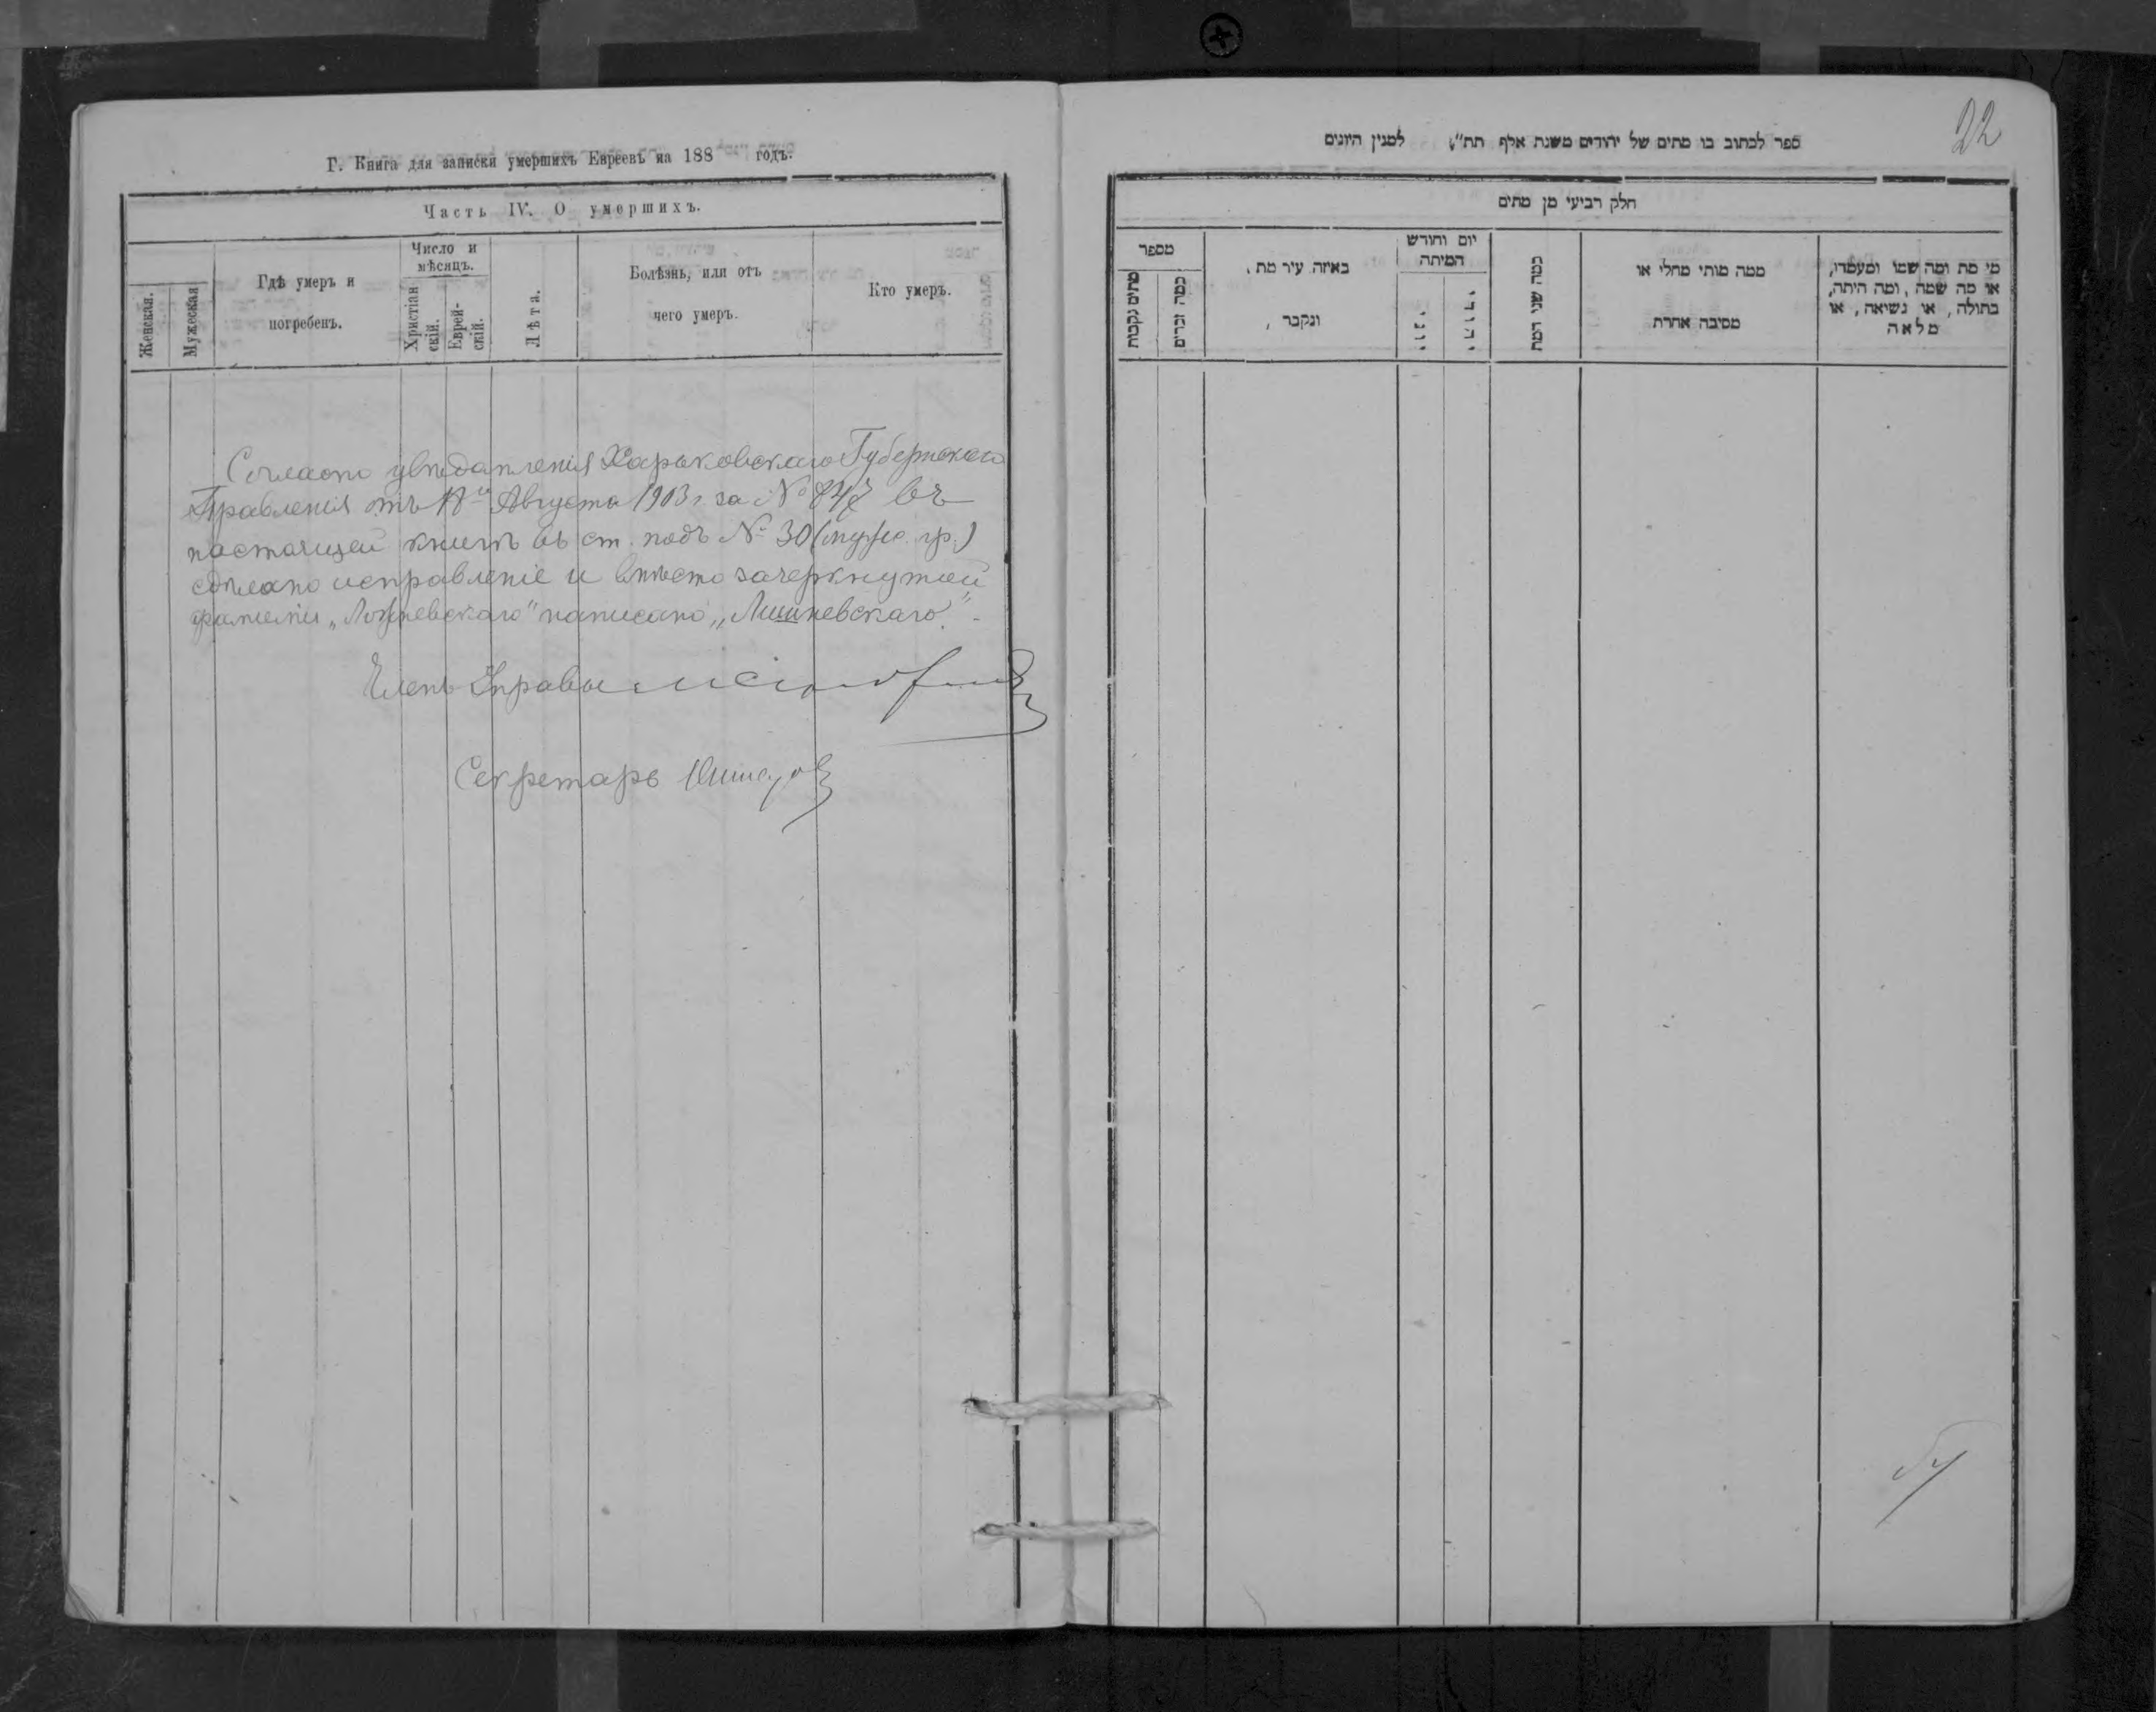 Г. Книга для записки умершихъ Евреевъ на 188 годъ.
Часть IV. О умершихъ.
Женская.
Мужеская
Гдѣ умеръ и
погребенъ.
Число и
мѣсяцъ.
Христіан
скій.
Еврей-
скій.
Лѣта.
Болѣзнь, или отъ
чего умеръ.
Кто умеръ.
Согласно увѣдомленія Харьковскаго Губернскаго
Правленія отъ Августа 1903 г. за № въ
настоящей книгѣ въ ст. подъ № 30 (мужс. гр.)
сдѣлано исправленіе и вмѣсто зачеркнутой
фамиліи написано „Лишневскаго".
Членъ Управы
Секретарь
22
ספר לכתוב בו מתים של יהודים משנת אלף תת"י למנין היונים
חלק רביעי מן מתים
מספר
מתים נקבות
כמה זכרים
באיזה עיר מת,
ונקבר,
יום וחודש
המיתה
יוני
יהודי
כמה שני המת
ממה מותי מחלי או
מסיבה אחרת
מי מת ומה שמו ומעמדו,
או מה שמה, ומה היתה,
בתולה, או נשיאה, או
מלאה